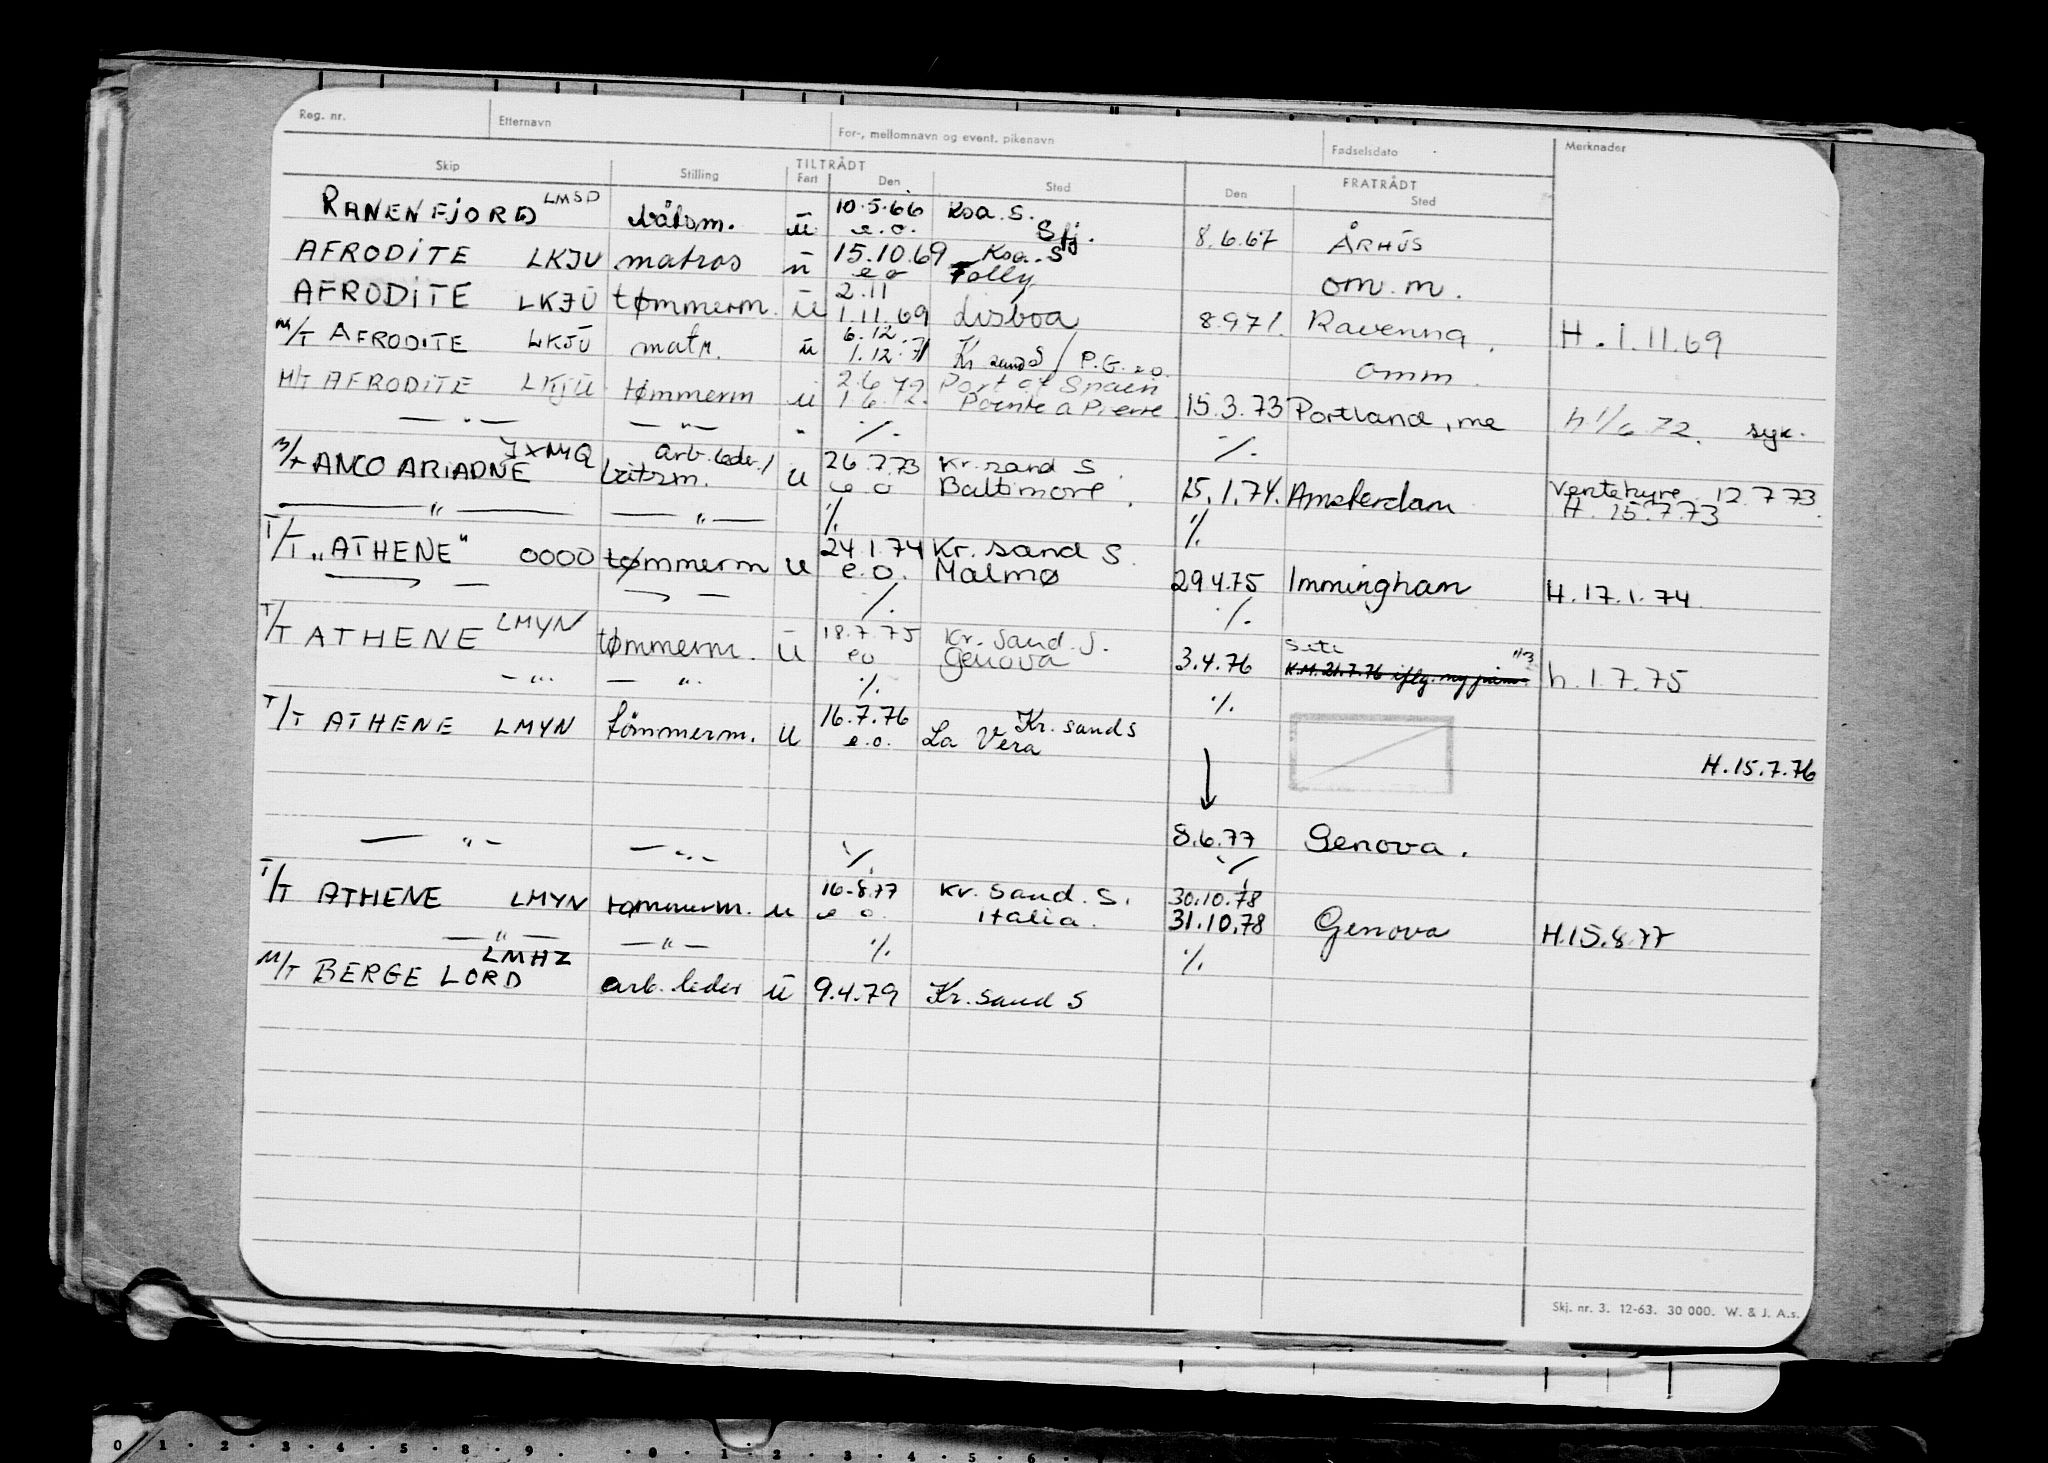 Reg. nr. Etternavn For-, mellomnavn og event. pikenavn Fødselsdato Merknader
TILTRÅDT FRATRÅDT
Skip Stilling Fart Den Sted Den Sted
RANENFJORD LMSD båtsm. u 10.5.66 Ksa. S.
e.o. Sfj. 8.6.67 ÅRHUS
AFRODITE LKJU matros u 15.10.69 Ksa. S
e o om.m.
AFRODITE LKJU tømmerm. u 2.11
1.11.69 Lisboa 8.9 71. Ravenna. H. 1.11.69
M/T AFRODITE LKJU matr. u 6.12.
1.12.71 Kr sand S / P.G. e.o. omm.
M/T AFRODITE LKJU tømmerm u 2.6.72 Port of Spain
1 6.72. Pointe a Pierre 15.3.73 Portland, me h 1/6 72. syk.
— " — — " — " ./. ./.
M/T ANCO ARIADNE JXMQ arb.leder/ båtsm. u 26.7.73 Kr. sand S.
e o Baltimore. 15.1.74. Amsterdam Ventehyre 12.7 73.
H. 15.7.73
— " — — " — ./. ./.
T/T "ATHENE" OOOO tømmerm u 24.1.74 Kr. sand S.
e.o. Malmø 29.4.75 Immingham H. 17.1.74.
— " — — " — ./. ./.
T/T ATHENE LMYN tømmerm. u 18.7.75 Kr. Sand. S.
eo Genova 3.4.76 h. 1.7.75
— " — — " — ./. ./.
T/T ATHENE LMYN tömmerm. u 16.7.76 Kr. sand S
e.o. La Vera
H. 15.7.76
8.6.77 Genova.
— " — — " — ./. ./.
T/T ATHENE LMYN tømmerm. u 16.8.77 Kr. Sand. S. 30.10.78
e o. Italia. 31.10.78 Genova H. 15.8.77
— " — — " — ./. ./.
M/T BERGE LORD LMHZ arb. leder u 9.4.79 Kr. Sand S
Skj. nr. 3. 12-63. 30 000. W. & J. A.s.
0 1 2 3 4 5 8 9 0 1 2 3 4 5 6